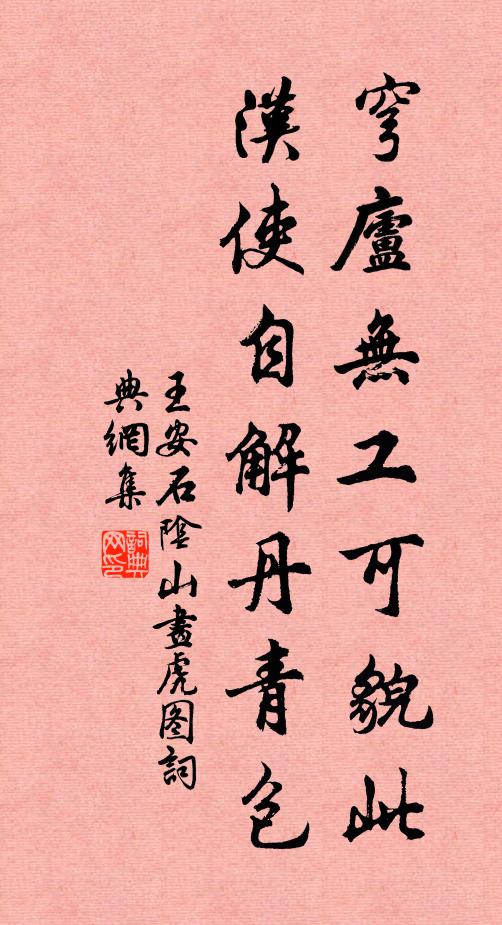 穹廬無工可貌此
漢使自解丹青包
王安石陰山畫虎图詞
典網集
詞典
网印